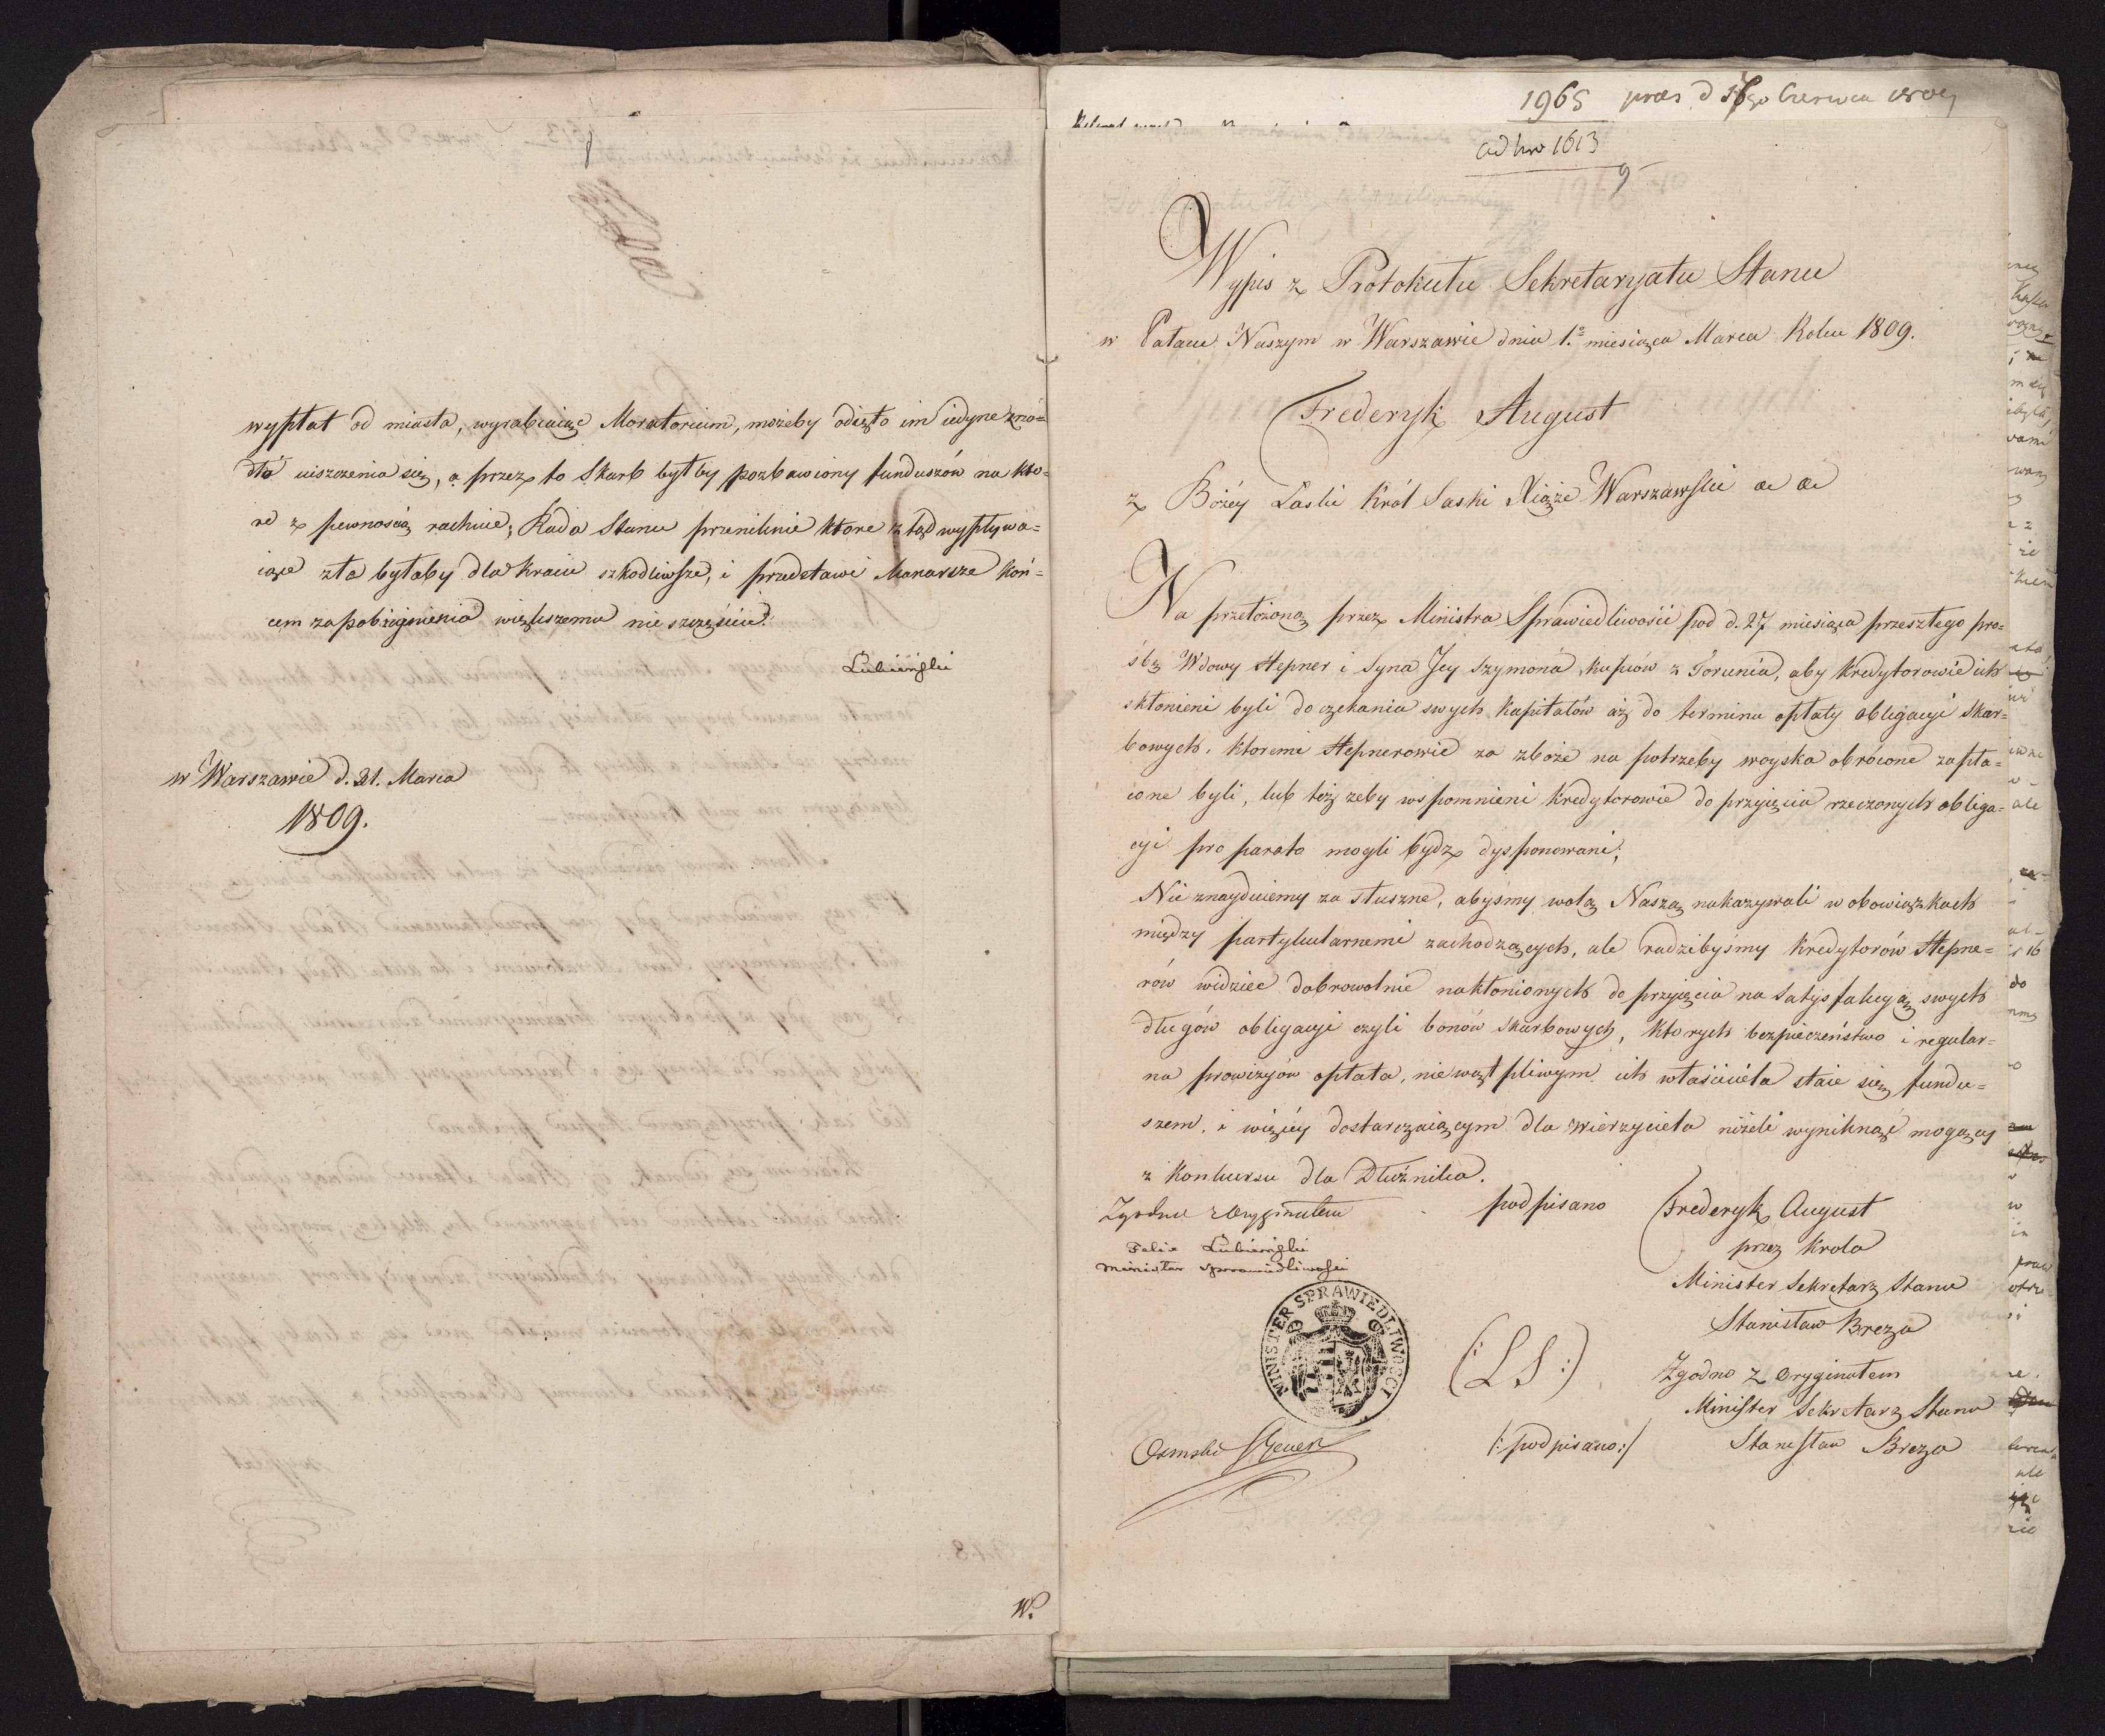 wypłat od miasta, wyrabiaiąc Moratorium, możeby odięto im iedyne źró=
dło uiszczenia się, a przez to Skarb byłby pozbawiony funduszów na któ=
re z pewnością rachuie; Rada Stanu przeniknie które ztąd wypływa=
iące zła byłaby dla kraiu szkodliwsze, i przedstawi Monarsze koń=
cem zapobieżenia większemu nieszczęściu.
Lubieński
w Warszawie d. 21. Marca
1809.
W.
1965 praes d Czerwca 1809
ad Nro 1613
9
Wypis z Protokułu Sekretaryatu Stanu
w Pałacu Naszym w Warszawie dnia 1.º miesiąca Marca Roku 1809.
Frederyk August
z Bożey Łaski Król Saski Xiąże Warszawski &c &c
Na przełożoną przez Ministra Sprawiedliwości pod d. 27 miesiąca przeszłego pro=
śbę Wdowy Stepner i Syna Jey Szymona kupców z Torunia, aby kredytorowie ich
skłonieni byli do czekania swych kapitałów aż do terminu opłaty obligacyi skar=
bowych, któremi Stepnerowie za zboże na potrzeby woyska obrócone zapła=
cone byli, lub też żeby wspomnieni kredytorowie do przyięcia rzeczonych obliga=
cyi pro parato mogli bydz dysponowani;
Nie znayduiemy za słuszne, abyśmy wolą Naszą nakazywali w obowiązkach
między partykularnemi zachodzących, ale radzibyśmy kredytorów Stepne=
rów widzieć dobrowolnie nakłonionych do przyięcia na satysfakcyą swych
długów obligacyi czyli bonów skarbowych, których bezpieczeństwo i regular=
na prowizyów opłata, niewątpliwym ich właściciela staie się fundu=
szem, i więcey dostarczaiącym dla wierzyciela niżeli wyniknąć mogący
z konkursu dla Dłużnika.
Zgodno z Oryginałem
podpisano Frederyk August
Felix Lubieński
przez Króla
Minister Sprawiedliwości
Minister Sekretarz Stanu
MINISTER SPRAWIEDLIWOSCI
Stanisław Breza
(:LS:)
Zgodno z oryginałem
Minister Sekretarz Stanu
/:podpisano:/ Stanisław Breza